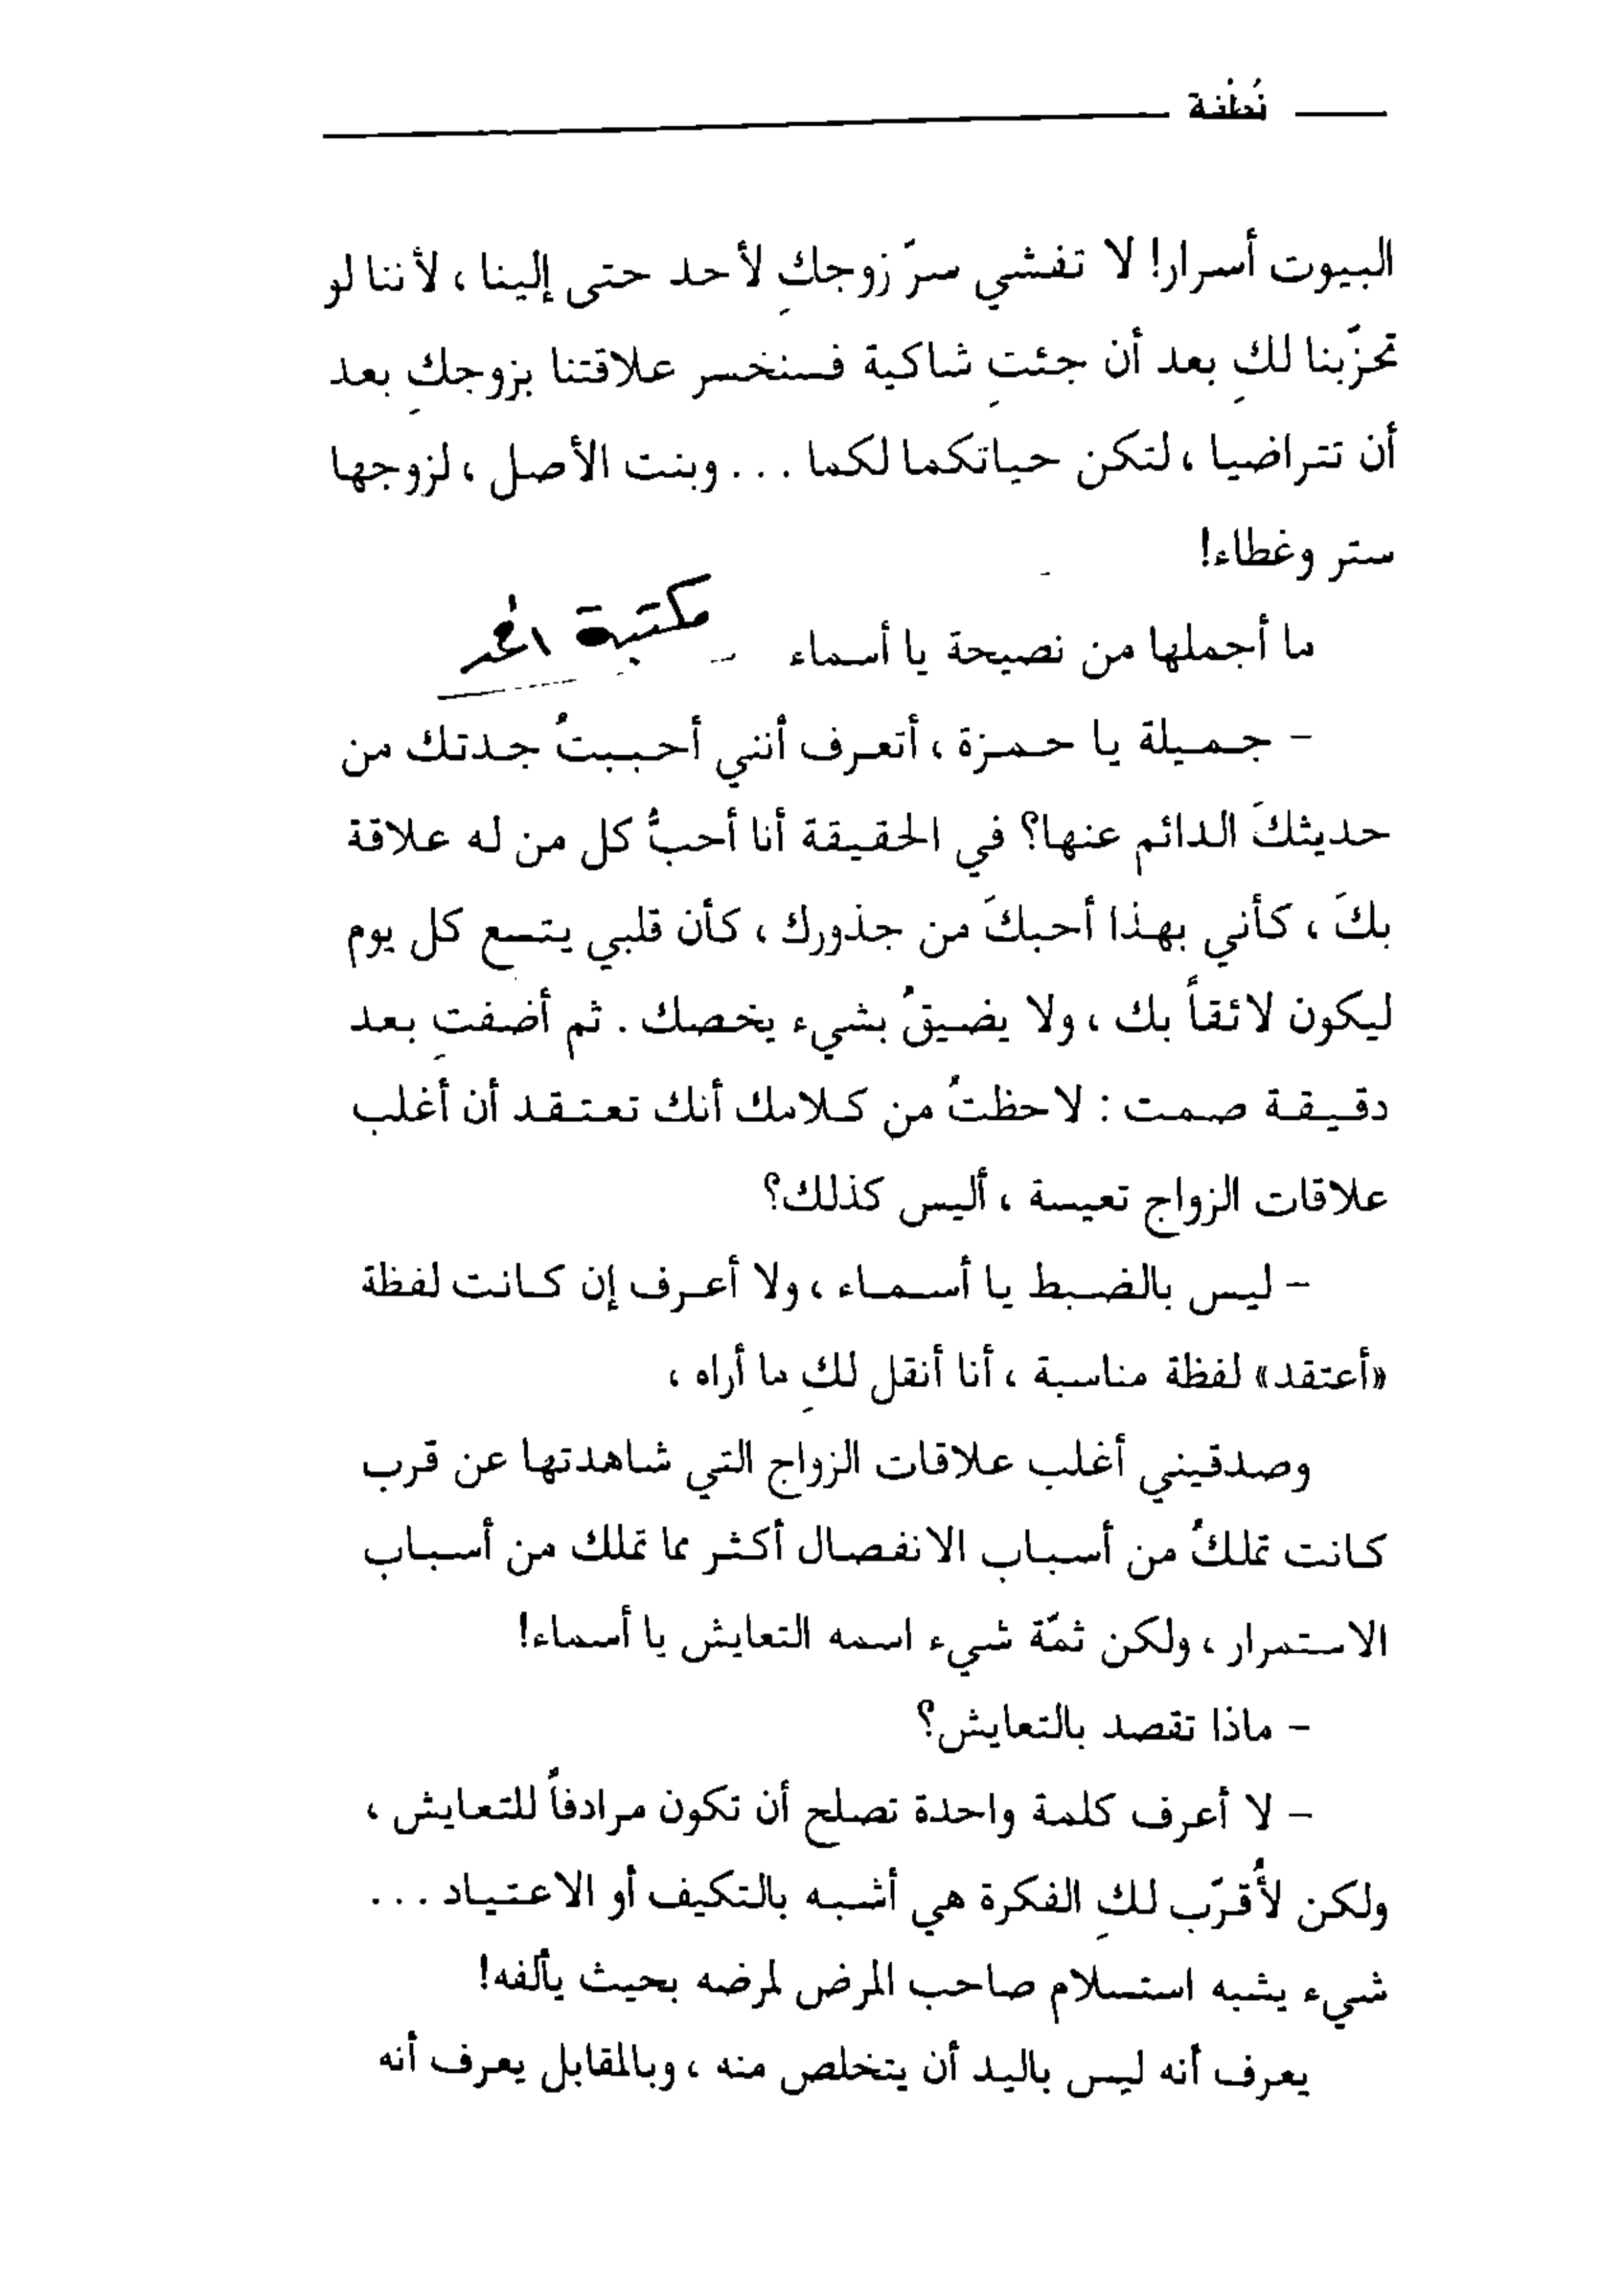 نُطْفة
البيوت أسرار! لا تفشي سرّ زوجكِ لأحد حتى إلينا ، لأننا لو
تحزّبنا لكِ بعد أن جئتِ شاكية فسنخسر علاقتنا بزوجكِ بعد
أن تتراضيا ، لتكن حياتكما لكما ... وبنت الأصل ، لزوجها
ستر وغطاء!
ما أجملها من نصيحة يا أسماء
مكتبة
- جميلة يا حمزة ، أتعرف أنني أحببتُ جدتك من
حديثكَ الدائم عنها؟ في الحقيقة أنا أحبُّ كل من له علاقة
بكَ ، كأني بهذا أحبكَ من جذورك ، كأن قلبي يتسع كل يوم
ليكون لائقاً بك ، ولا يضيقُ بشيء يخصك . ثم أضفتِ بعد
دقيقة صمت : لاحظتُ من كلامك أنك تعتقد أن أغلب
علاقات الزواج تعيسة ، أليس كذلك؟
- ليس بالضبط يا أسماء ، ولا أعرف إن كانت لفظة
«أعتقد» لفظة مناسبة ، أنا أنقل لكِ ما أراه ،
وصدقيني أغلب علاقات الزواج التي شاهدتها عن قرب
كانت تملكُ من أسباب الانفصال أكثر مما تملك من أسباب
الاستمرار ، ولكن ثمّة شيء اسمه التعايش يا أسماء!
- ماذا تقصد بالتعايش؟
- لا أعرف كلمة واحدة تصلح أن تكون مرادفاً للتعايش ،
ولكن لأُقرّب لكِ الفكرة هي أشبه بالتكيف أو الاعتياد ...
شيء يشبه استسلام صاحب المرض لمرضه بحيث يألفه!
يعرف أنه ليس باليد أن يتخلص منه ، وبالمقابل يعرف أنه